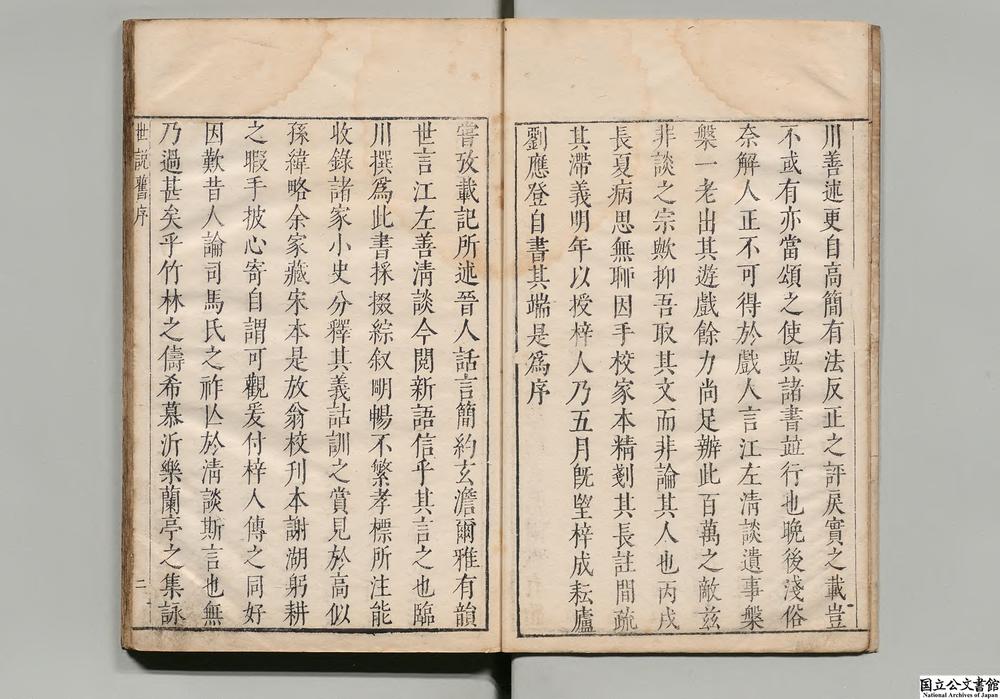 川善述更自高簡有法反正之評戾實之載豈
不或有亦當頌之使與諸書竝行也晩後淺俗
奈解人正不可得於戲人言江左淸談遺事槃
槃一老出其遊戲餘力尚足辦此百萬之敵兹
非談之宗歟抑吾取其文而非論其人也丙戌
長夏病思無聊因手校家本精剗其長註間疏
其滯義明年以授梓人乃五月旣朢梓成耘廬
劉應登自書其端是爲序
嘗攷載記所述晉人話言簡約玄澹爾雅有韻
世言江左善淸談今閱新語信乎其言之也臨
川撰爲此書採掇綜叙明暢不繁孝標所注能
收錄諸家小史分釋其義詁訓之賞見於高似
孫緯略余家藏宋本是放翁校刊本謝湖躬耕
之暇手披心寄自謂可觀爰付梓人傳之同好
因歎昔人論司馬氏之祚亾於淸談斯言也無
乃過甚矣乎竹林之儔希慕沂樂蘭亭之集詠
世說舊序
二
国立公文書館
National Archives of Japan